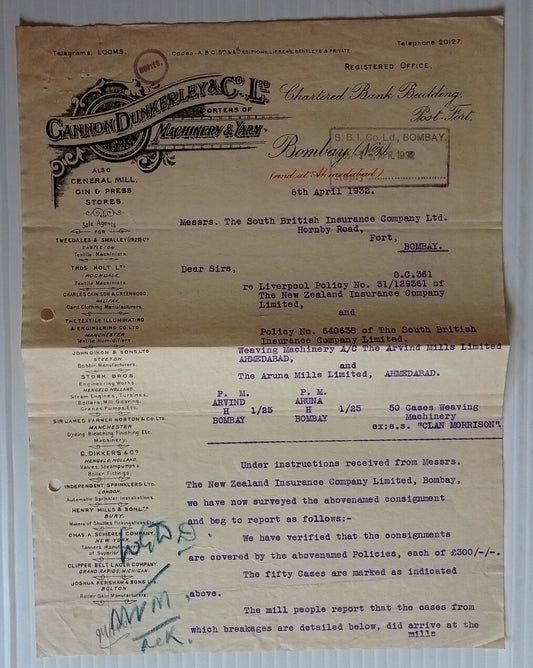 Telegrams, LOOMS.
Codes - A.B.C. 5th & 6th EDITIONS, LIEBERS, BENTLEYS & PRIVATE.
Telephone 20127.
REGISTERED OFFICE.
GANNON DUNKERLEY & Co. Ld.
IMPORTERS OF
MACHINERY & YARN
Chartered Bank Building,
Post-Fort.
Bombay
(and at Ahmedabad)
S. B. I. Co. Ld., BOMBAY.
APR 1932
6th April 1932.
ALSO
GENERAL MILL,
GIN & PRESS
STORES.
Sole Agents
FOR
TWEEDALES & SMALLEY (1920) Ld
CASTLETON
Textile Machinists
THOS HOLT Ld
ROCHDALE.
Textile Machinists
CHARLES CAIN SON & GREENWOOD.
HALIFAX.
Card Clothing Manufacturers.
THE TEXTILE ILLUMINATING
& ENGINEERING CO LTD
MANCHESTER
Textile Humidifiers
JOHN DIXON & SONS, LTD
STEETON
Bobbin Manufacturers.
STORK BROS.
Engineering Works.
HENGELO, HOLLAND.
Steam Engines, Turbines,
Boilers, Mill Gearing,
Cranes, Pumps, Etc.
SIR JAMES FARMER NORTON & CO. LTD.
MANCHESTER
Dyeing Bleaching Finishing Etc.
Machinery.
G. DIKKERS & Co
HENGELO, HOLLAND.
Valves, Steampumps &
Boiler Fittings.
INDEPENDENT SPRINKLERS LTD.
LONDON.
Automatic Sprinkler Installations.
HENRY MILLS & SON, LTD
BURY.
Makers of Shuttles, Pickingsticks Etc.
CHAS. A. SCHIEREN COMPANY.
NEW YORK.
Tanners
of Superior
CLIPPER BELT LACER COMPANY.
GRAND RAPIDS, MICHIGAN.
JOSHUA KERSHAW & SONS Ld.
BOLTON
Roller Skin Manufacturers.
Messrs. The South British Insurance Company Ltd.
Hornby Road,
Fort,
BOMBAY.
Dear Sirs,
O.C.361
re Liverpool Policy No. 31/129361 of
The New Zealand Insurance Company
Limited,
and
Policy No. 640638 of The South British
Insurance Company Limited.
Weaving Machinery A/C The Arvind Mills Limited
AHMEDABAD,
and
The Aruna Mills Limited, AHMEDABAD.
P. M. P. M.
ARVIND ARUNA
H 1/25 H 1/25 50 Cases Weaving
BOMBAY BOMBAY Machinery
ex:s.s. "CLAN MORRISON".
Under instructions received from Messrs.
The New Zealand Insurance Company Limited, Bombay,
we have now surveyed the abovenamed consignment
and beg to report as follows:-
We have verified that the consignments
are covered by the abovenamed Policies, each of £300/-/-.
The fifty Cases are marked as indicated
above.
The mill people report that the cases from
which breakages are detailed below, did arrive at the
mills